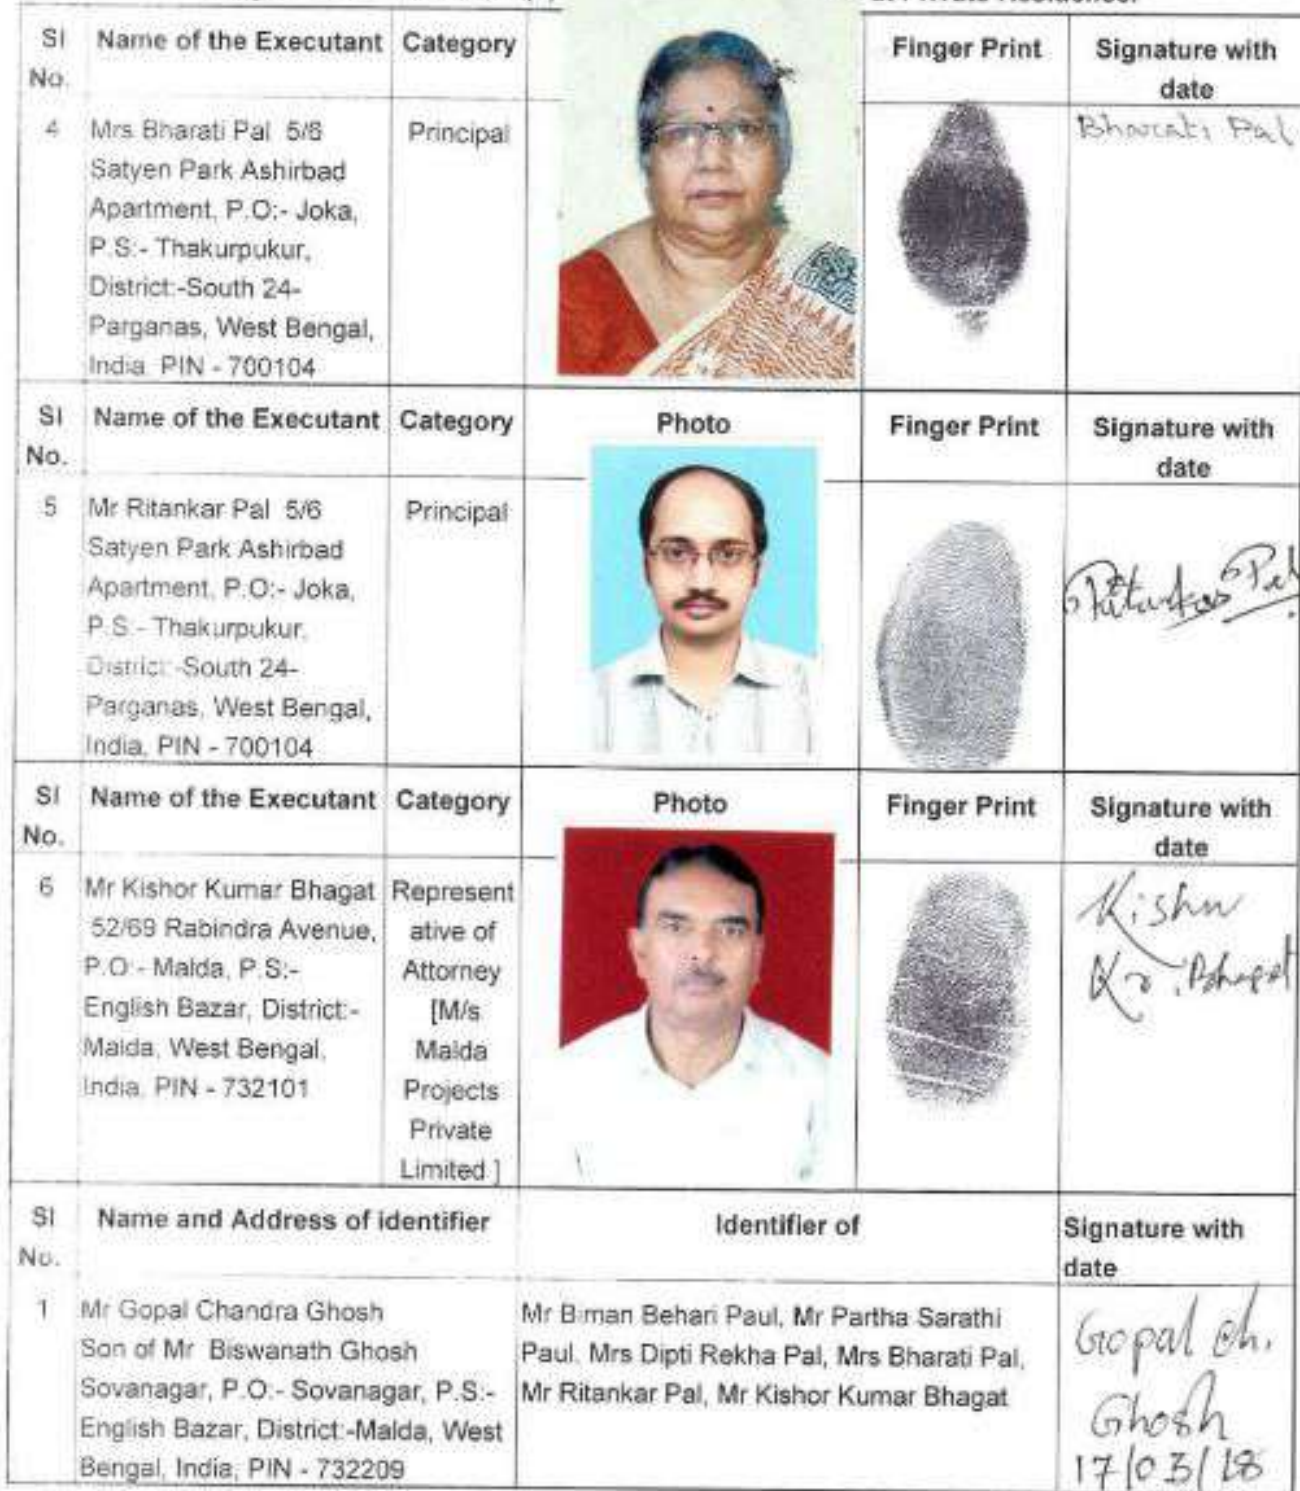 Sl No. Name of the Executant Category Finger Print Signature with date
4 Mrs Bharati Pal 5/6 Satyen Park Ashirbad Apartment, P.O:- Joka, P.S:- Thakurpukur, District:-South 24-Parganas, West Bengal, India PIN - 700104
Principal
Bharati Pal
Sl No. Name of the Executant Category Photo Finger Print Signature with date
5 Mr Ritankar Pal 5/6
Satyen Park Ashirbad
Apartment, P.O:- Joka,
P.S:- Thakurpukur,
District:-South 24-
Parganas, West Bengal,
India, PIN - 700104
Principal
Ritankar Pal
Sl No. Name of the Executant Category Photo Finger Print Signature with date
6 Mr Kishor Kumar Bhagat
52/69 Rabindra Avenue,
P.O:- Malda, P.S:-
English Bazar, District:-
Malda, West Bengal,
India, PIN - 732101
Represent
ative of
Attorney
[M/s
Malda
Projects
Private
Limited ]
Kishor
Kr. Bhagat
Sl No. Name and Address of identifier Identifier of Signature with date
1 Mr Gopal Chandra Ghosh
Son of Mr Biswanath Ghosh
Sovanagar, P.O:- Sovanagar, P.S:-
English Bazar, District:-Malda, West
Bengal, India, PIN - 732209
Mr Biman Behari Paul, Mr Partha Sarathi
Paul, Mrs Dipti Rekha Pal, Mrs Bharati Pal,
Mr Ritankar Pal, Mr Kishor Kumar Bhagat
Gopal ch.
Ghosh
17/03/18